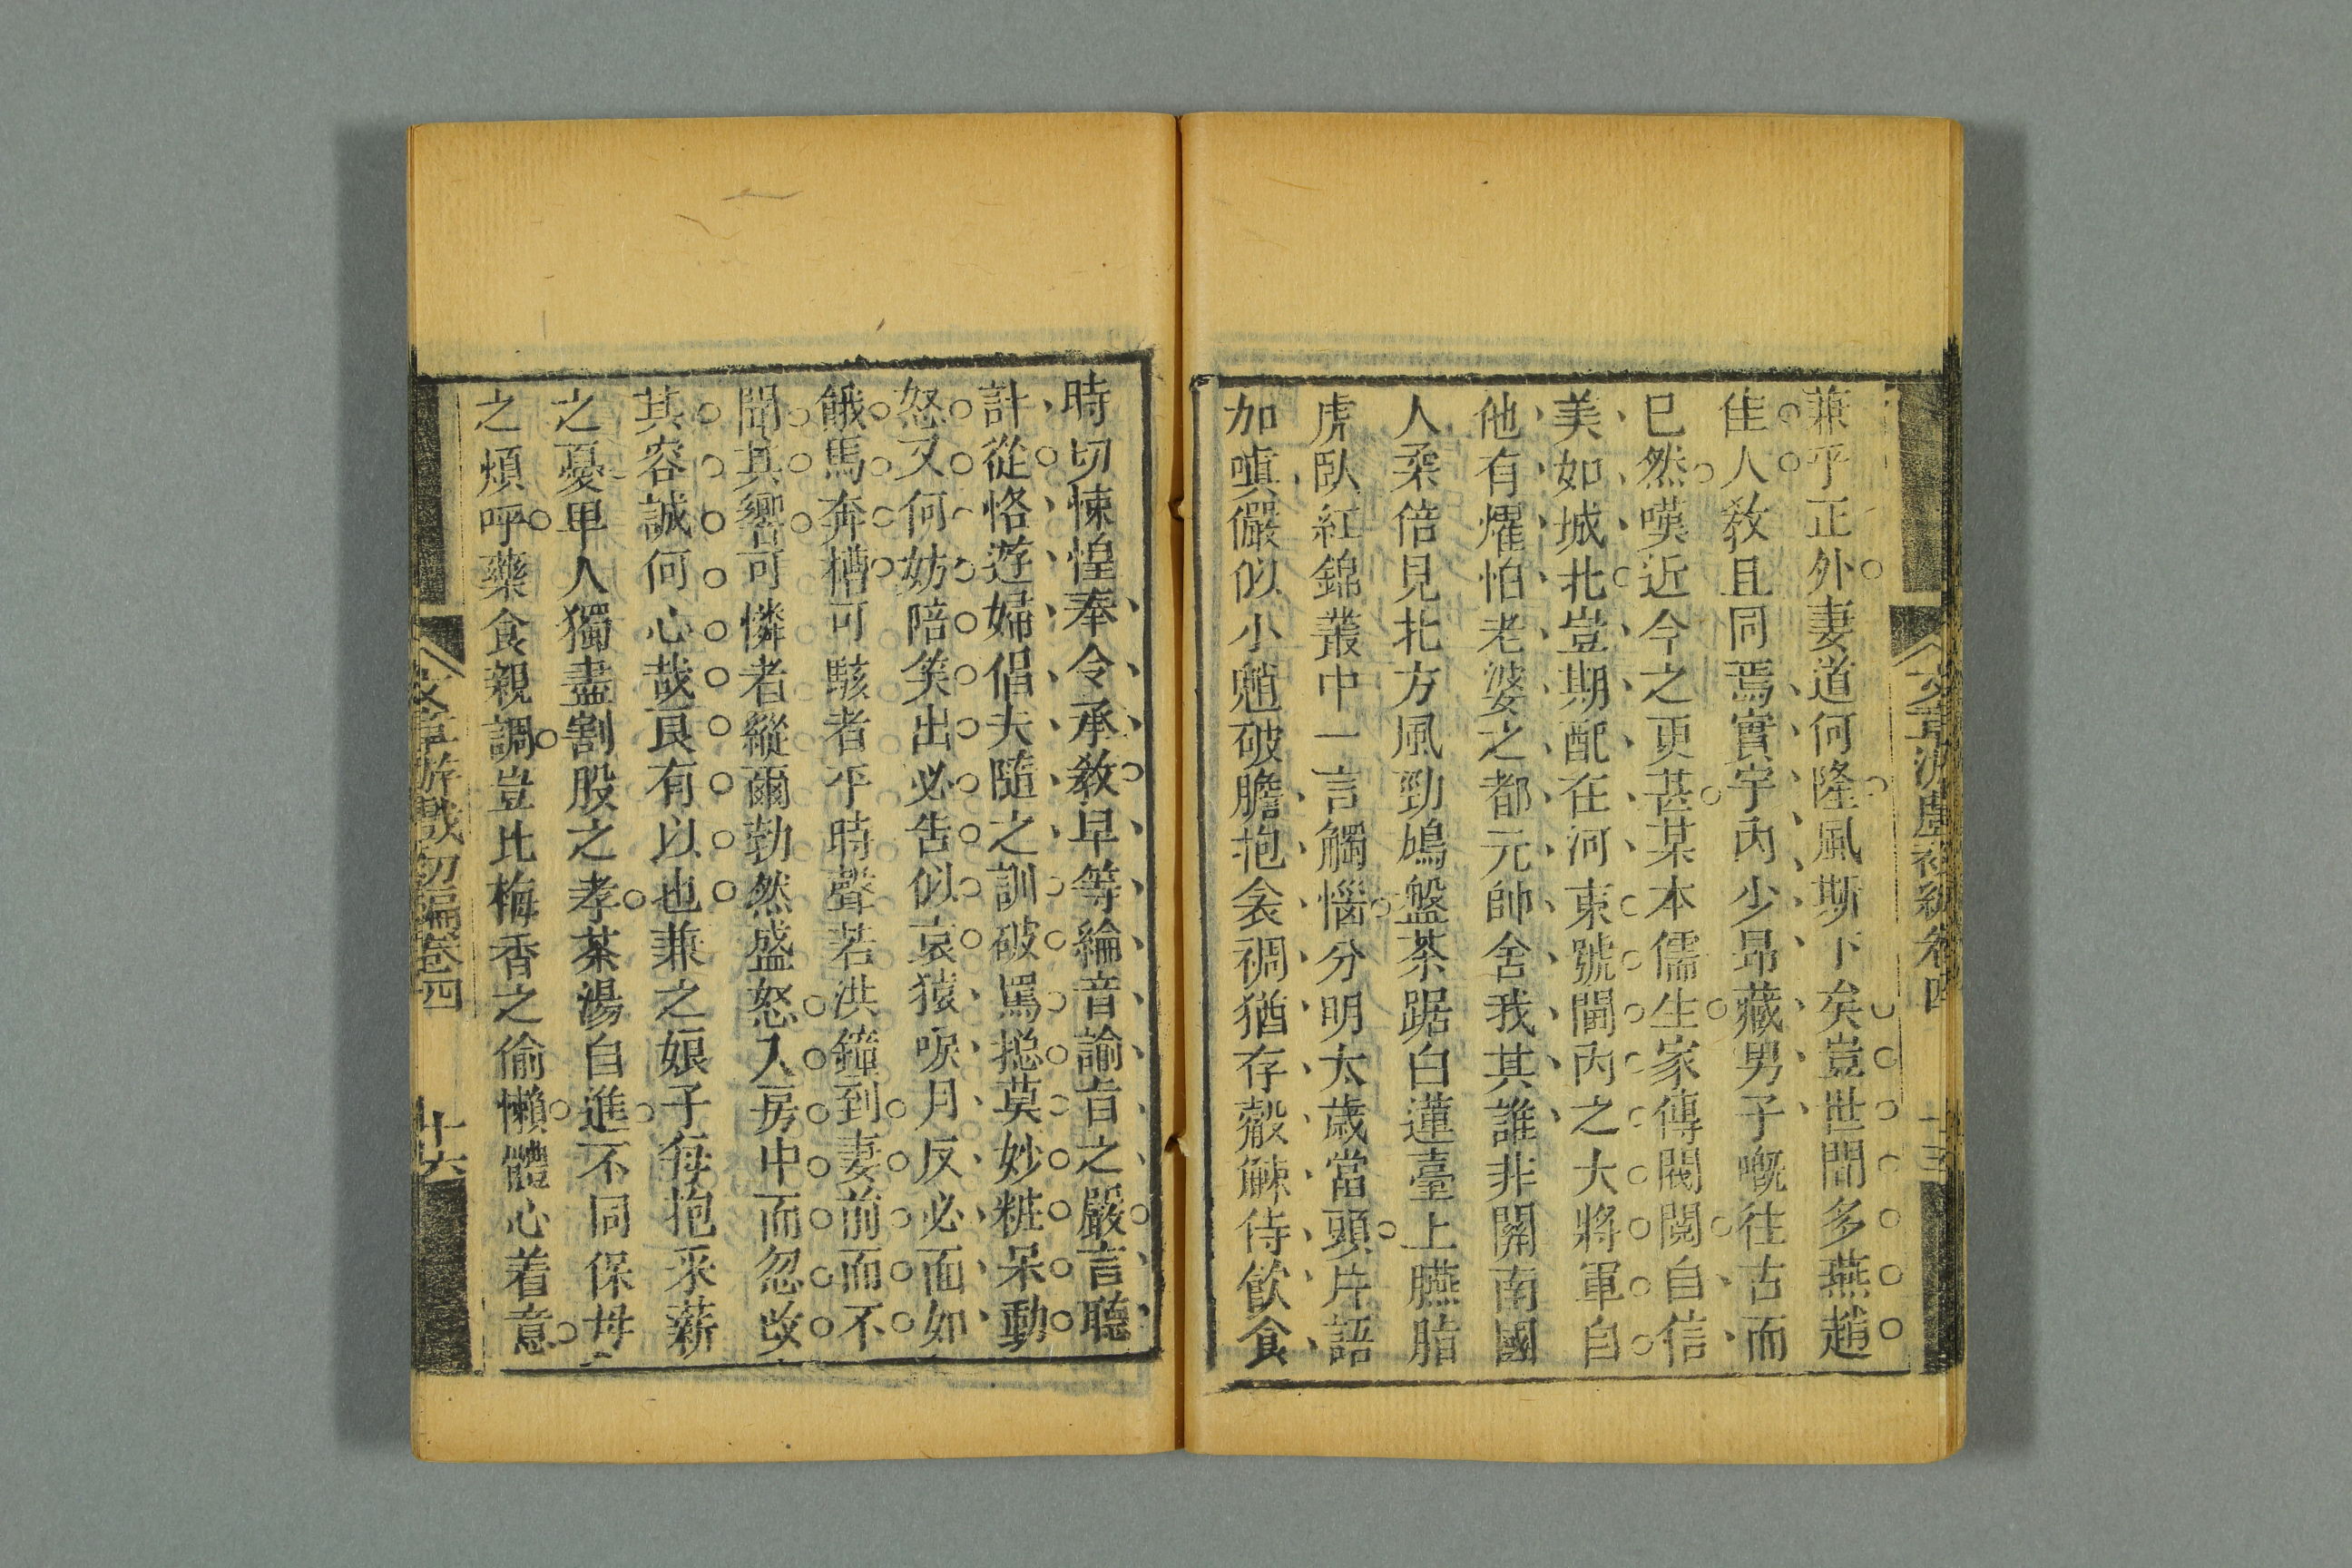 兼乎正外妻道何隆風斯下矣豈世間多燕趙
佳人敎且同焉實宇內少昂藏男子嘅往古而
已然嘆近今之更甚某本儒生家傳閥閱自信
美如城北豈期配在河東號閫內之大將軍自
他有懼怕老婆之都元帥舍我其誰非關南國
人柔倍見北方風勁鳩盤茶踞白蓮臺上臙脂
虎臥紅錦叢中一言觸惱分明太歲當頭片語
加嗔儼似小魈破膽抱衾裯猶存觳觫侍飮食
時切悚惶奉令承敎早等綸音諭旨之嚴言聽
計從恪遊婦倡夫隨之訓破罵搃莫妙粧呆動
怒又何妨陪笑出必告似哀猿唳月反必面如
餓馬奔槽可駭者平時聲若洪鐘到妻前而不
聞其響可憐者縱爾勃然盛怒入房中而忽改
其容誠何心哉良有以也兼之娘子每抱采薪
之憂卑人獨盡割股之孝茶湯自進不同保母
之煩呼藥食親調豈比梅香之偷懶體心着意
文章游戲初編卷四
十六